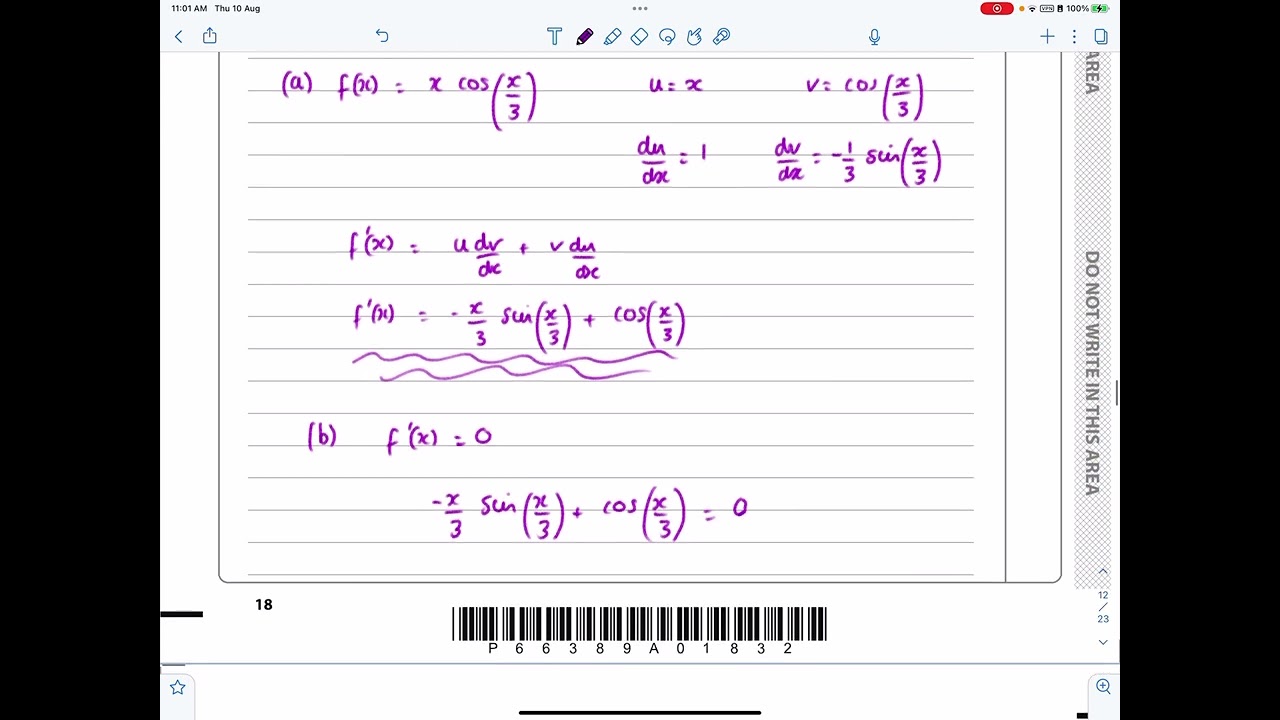 11:01 AM Thu 10 Aug
VPN 100%
(a) f(x) = x cos(x/3) u = x v = cos(x/3)
du/dx = 1 dv/dx = -1/3 sin(x/3)
f'(x) = u dv/dx + v du/dx
f'(x) = -x/3 sin(x/3) + cos(x/3)
(b) f'(x) = 0
-x/3 sin(x/3) + cos(x/3) = 0
AREA
DO NOT WRITE IN THIS AREA
12
/
23
18
P66389A01832